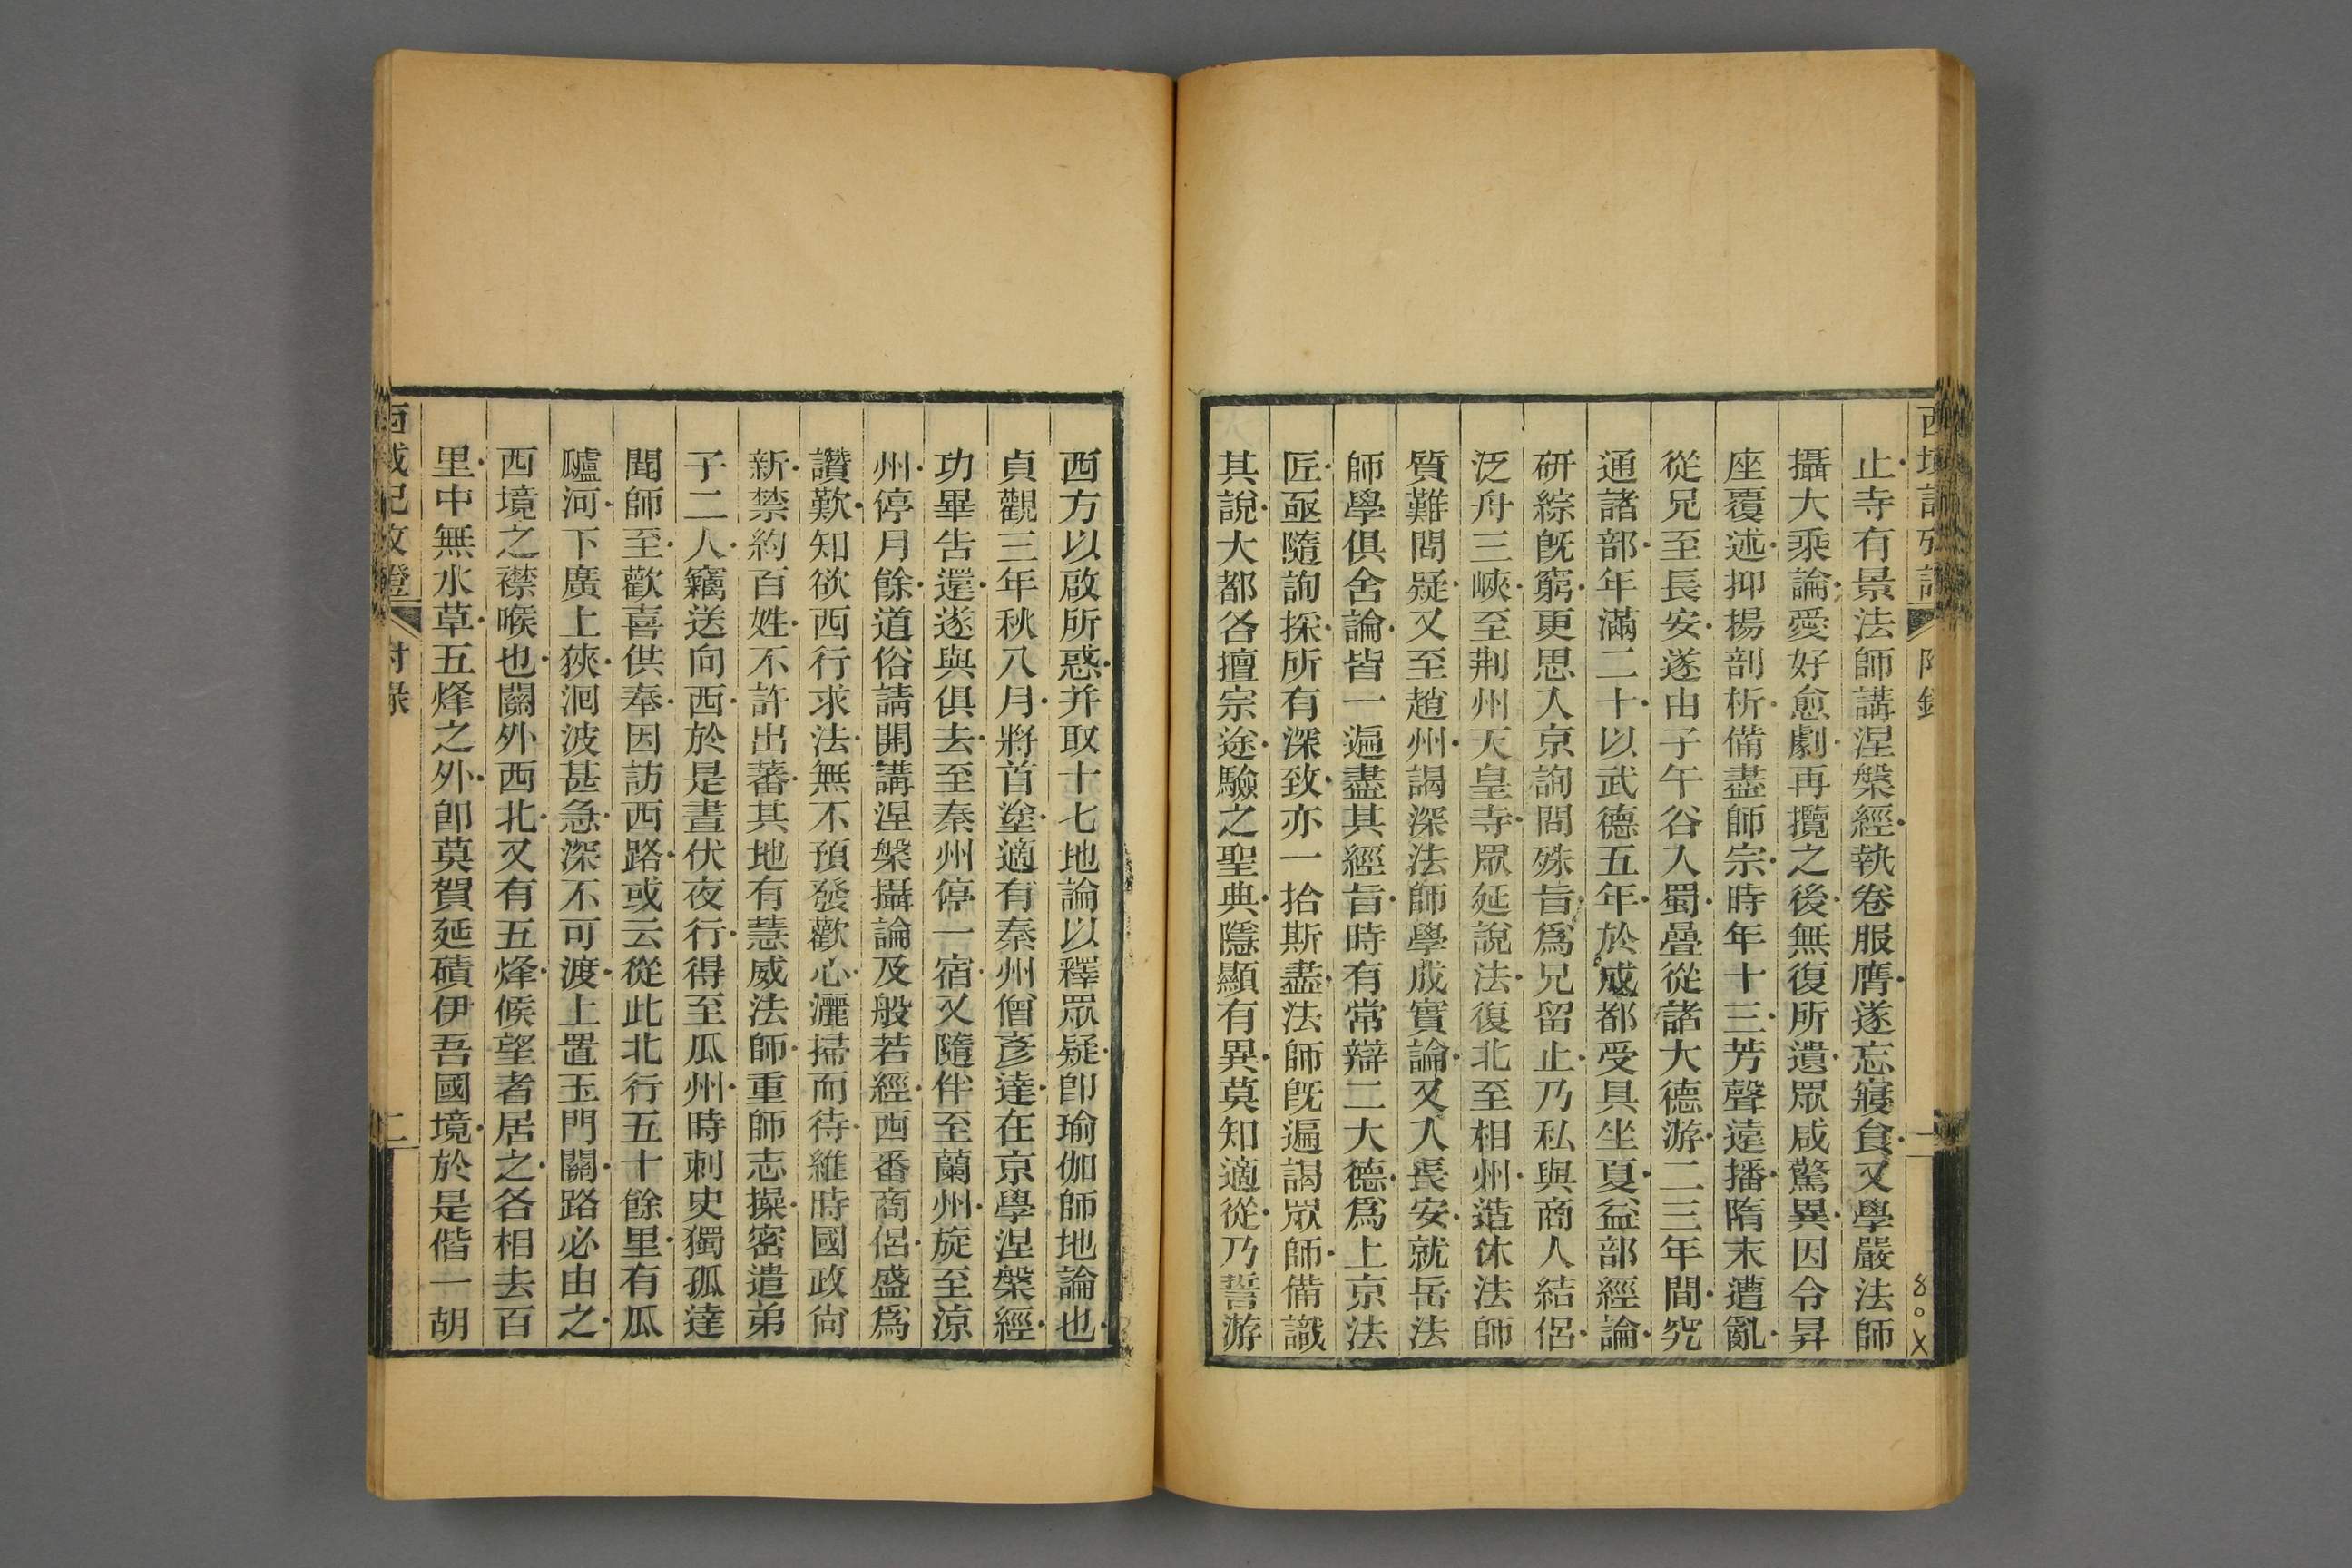 止寺有景法師講涅槃經執卷服膺遂忘寢食又學嚴法師
攝大乘論愛好愈劇再攬之後無復所遺眾咸驚異因令昇
座覆述抑揚剖析備盡師宗時年十三芳聲遠播隋末遭亂
從兄至長安遂由子午谷入蜀疊從諸大德游二三年間究
通諸部年滿二十以武德五年於成都受具坐夏益部經論
研綜旣窮更思入京詢問殊旨爲兄留止乃私與商人結侶
泛舟三峽至荆州天皇寺眾延說法復北至相州造休法師
質難問疑又至趙州謁深法師學成實論又入長安就岳法
師學俱舍論皆一遍盡其經旨時有常辯二大德爲上京法
匠亟隨詢採所有深致亦一拾斯盡法師旣遍謁眾師備識
其說大都各擅宗途驗之聖典隱顯有異莫知適從乃誓游
西方以啟所惑并取十七地論以釋眾疑卽瑜伽師地論也
貞觀三年秋八月將首塗適有秦州僧彥達在京學涅槃經
功畢告還遂與俱去至秦州停一宿又隨伴至蘭州旋至涼
州停月餘道俗請開講涅槃攝論及般若經西番商侶盛爲
讚歎知欲西行求法無不預發歡心灑掃而待維時國政尙
新禁約百姓不許出蕃其地有慧威法師重師志操密遣弟
子二人竊送向西於是晝伏夜行得至瓜州時刺史獨孤達
聞師至歡喜供奉因訪西路或云從此北行五十餘里有瓜
𤬛河下廣上狹洄波甚急深不可渡上置玉門關路必由之
西境之襟喉也關外西北又有五烽候望者居之各相去百
里中無水草五烽之外卽莫賀延磧伊吾國境於是偕一胡
西域記攷證 附錄 二